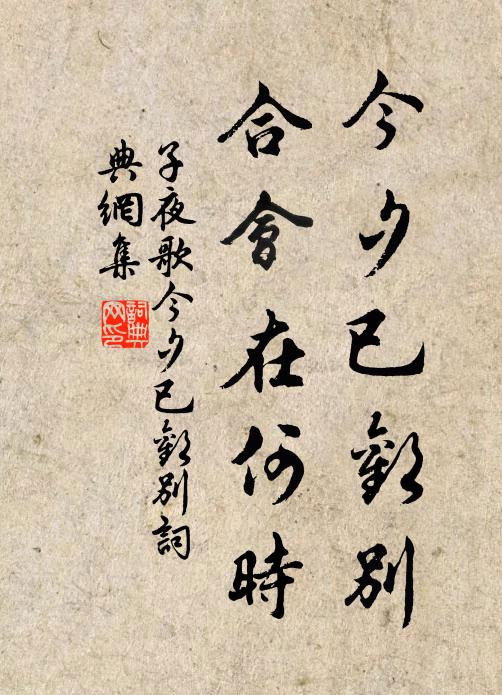 今夕已歡別
合會在何時
子夜歌今夕已歡別詞
典網集
詞典
网印